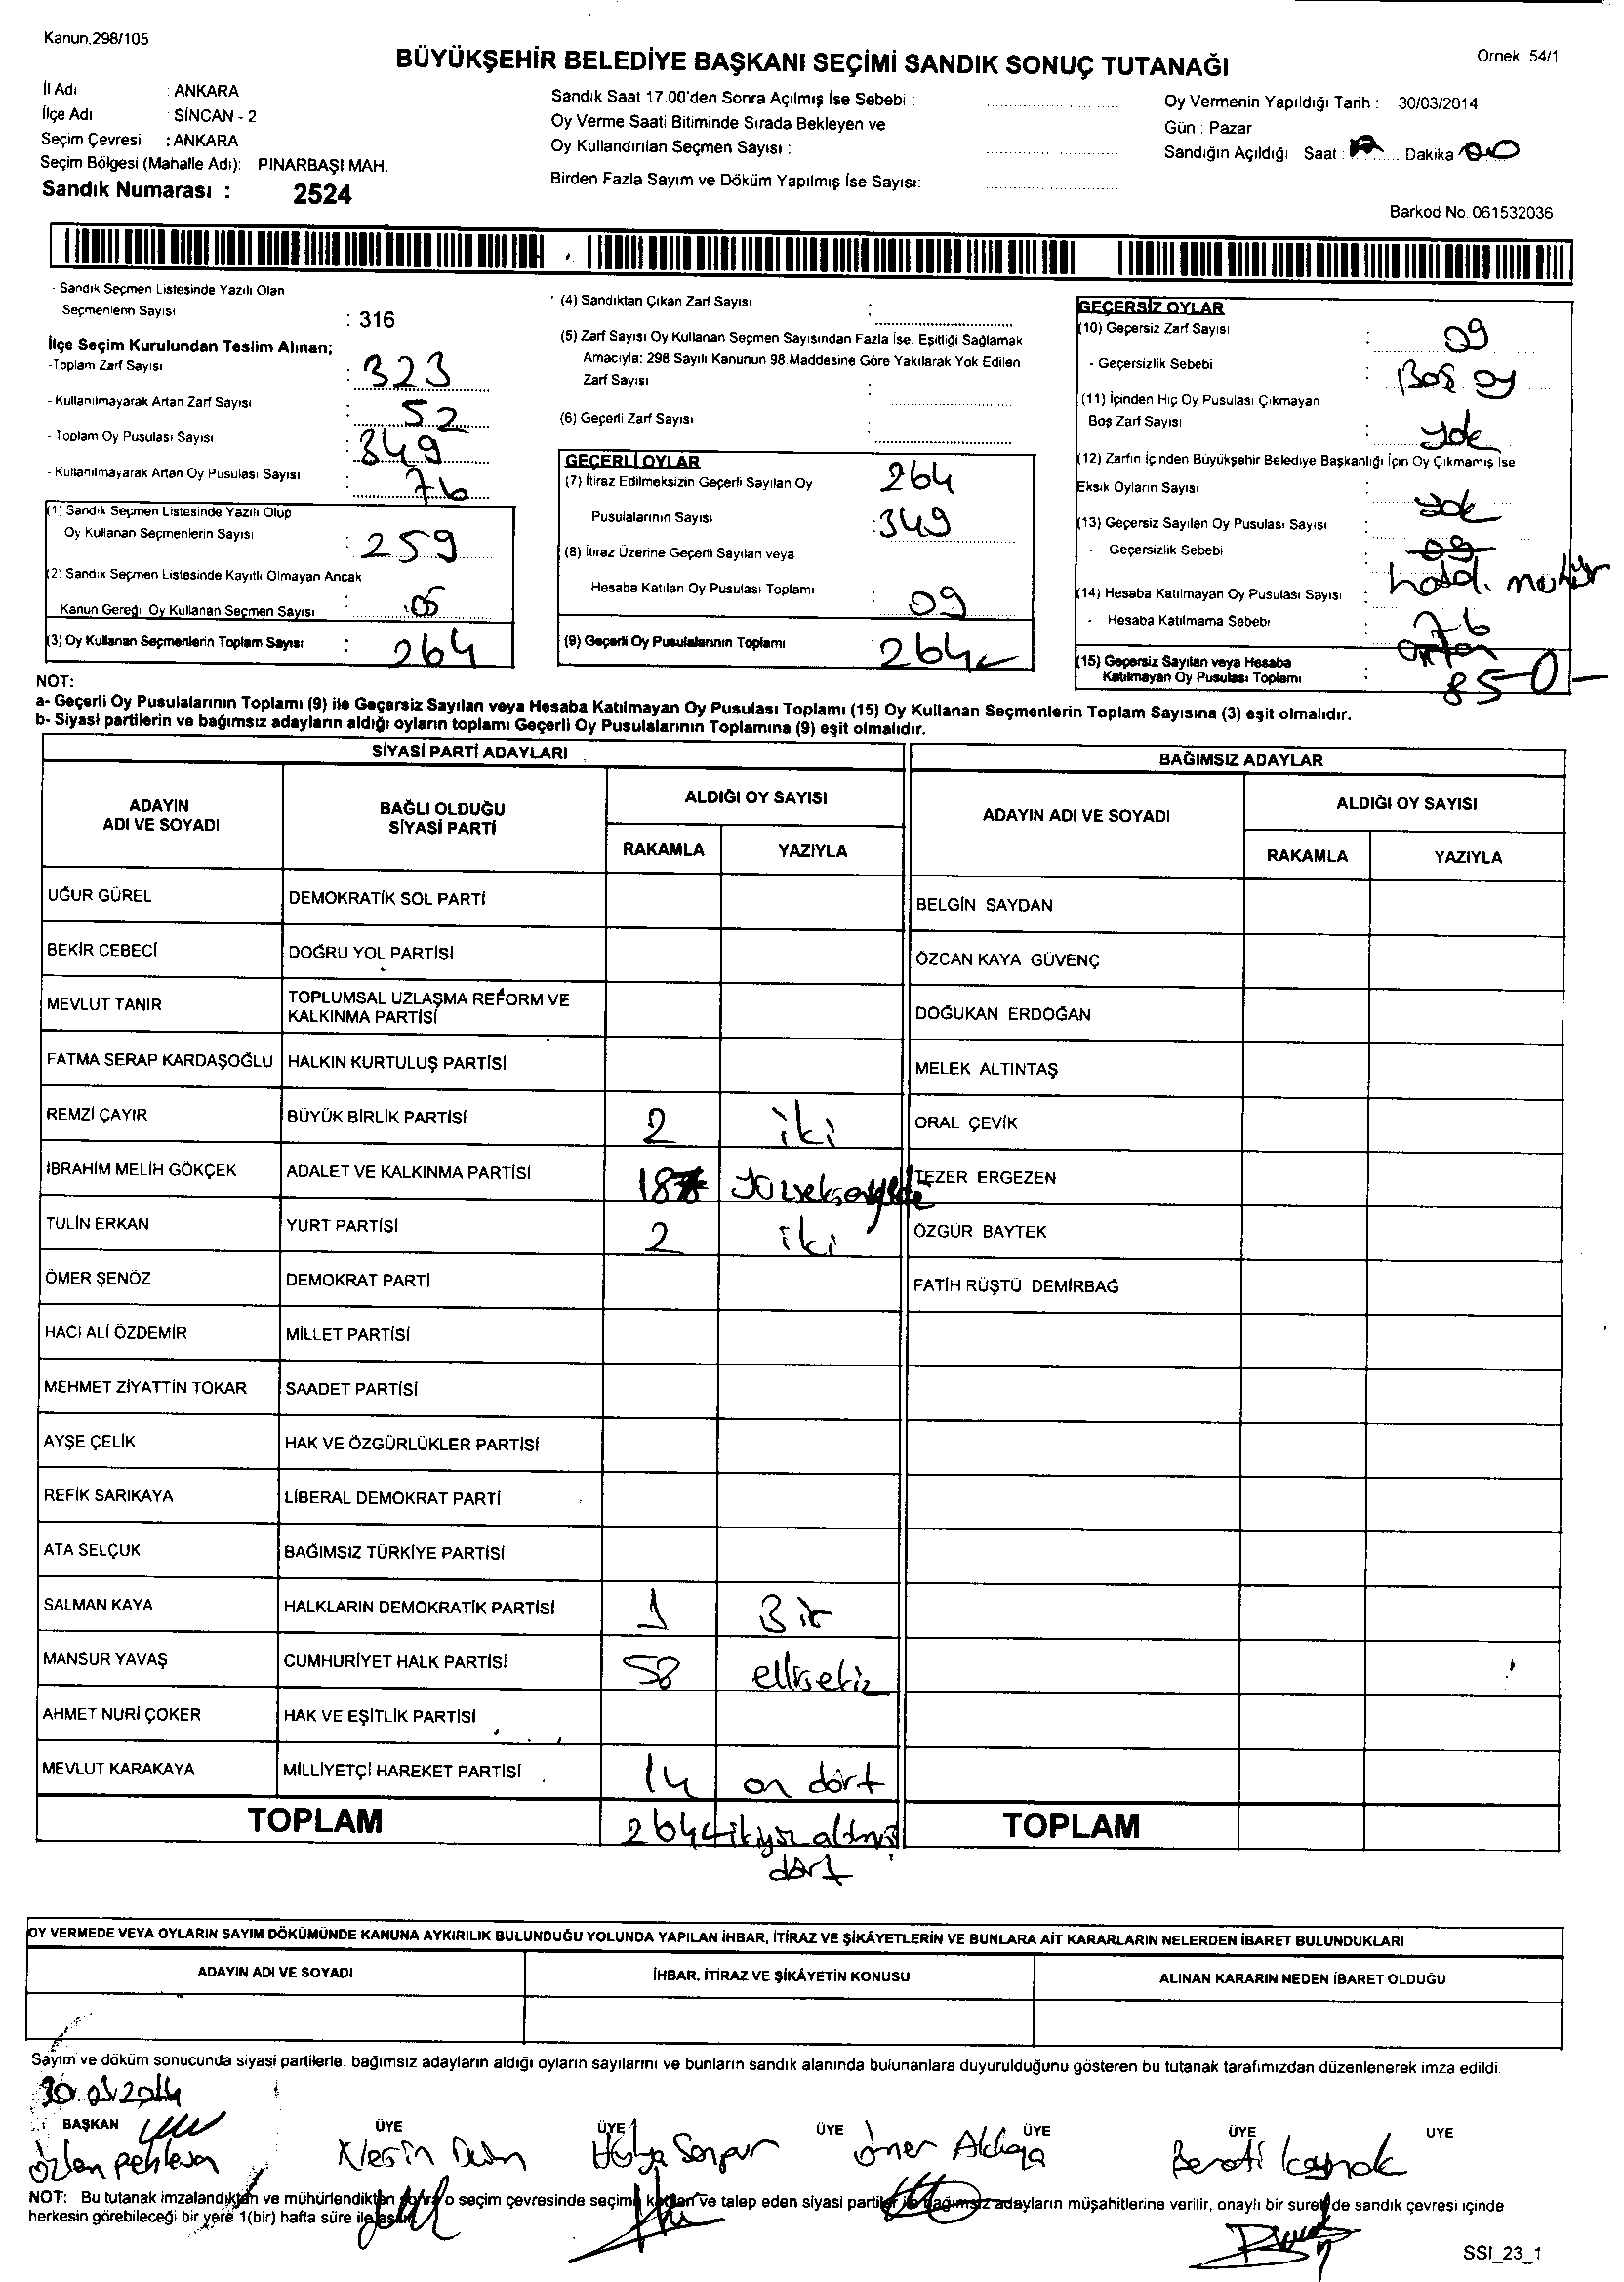 Kanun.298/105
BÜYÜKŞEHİR BELEDİYE BAŞKANI SEÇİMİ SANDIK SONUÇ TUTANAĞI
Ornek. 54/1
İl Adı : ANKARA
İlçe Adı SİNCAN - 2
Seçim Çevresi : ANKARA
Seçim Bölgesi (Mahalle Adı): PINARBAŞI MAH.
Sandık Numarası : 2524
Sandık Saat 17.00'den Sonra Açılmış İse Sebebi :
Oy Verme Saati Bitiminde Sırada Bekleyen ve
Oy Kullandırılan Seçmen Sayısı :
Birden Fazla Sayım ve Döküm Yapılmış İse Sayısı:
Oy Vermenin Yapıldığı Tarih : 30/03/2014
Gün : Pazar
Sandığın Açıldığı Saat : Dakika 00
Barkod No. 061532036
- Sandık Seçmen Listesinde Yazılı Olan
Seçmenlerin Sayısı : 316
İlçe Seçim Kurulundan Teslim Alınan;
-Toplam Zarf Sayısı : 323
- Kullanılmayarak Artan Zarf Sayısı : 52
- Toplam Oy Pusulası Sayısı : 349
- Kullanılmayarak Artan Oy Pusulası Sayısı : 76
(1) Sandık Seçmen Listesinde Yazılı Olup
Oy Kullanan Seçmenlerin Sayısı : 259
(2) Sandık Seçmen Listesinde Kayıtlı Olmayan Ancak
Kanun Gereği Oy Kullanan Seçmen Sayısı : 05
(3) Oy Kullanan Seçmenlerin Toplam Sayısı : 264
(4) Sandıktan Çıkan Zarf Sayısı :
(5) Zarf Sayısı Oy Kullanan Seçmen Sayısından Fazla İse, Eşitliği Sağlamak
Amacıyla: 298 Sayılı Kanunun 98.Maddesine Göre Yakılarak Yok Edilen
Zarf Sayısı :
(6) Geçerli Zarf Sayısı :
GEÇERLİ OYLAR
(7) İtiraz Edilmeksizin Geçerli Sayılan Oy 264
Pusulalarının Sayısı : 349
(8) İtiraz Üzerine Geçerli Sayılan veya
Hesaba Katılan Oy Pusulası Toplamı : 09
(9) Geçerli Oy Pusulalarının Toplamı : 264
GEÇERSİZ OYLAR
(10) Geçersiz Zarf Sayısı : 09
- Geçersizlik Sebebi : Boş oy
(11) İçinden Hiç Oy Pusulası Çıkmayan
Boş Zarf Sayısı : yok
(12) Zarfın İçinden Büyükşehir Belediye Başkanlığı İçin Oy Çıkmamış İse
Eksik Oyların Sayısı : yok
(13) Geçersiz Sayılan Oy Pusulası Sayısı : 09
- Geçersizlik Sebebi :
(14) Hesaba Katılmayan Oy Pusulası Sayısı : 76
- Hesaba Katılmama Sebebi : artan
(15) Geçersiz Sayılan veya Hesaba
Katılmayan Oy Pusulası Toplamı : 85 -0-
NOT:
a- Geçerli Oy Pusulalarının Toplamı (9) ile Geçersiz Sayılan veya Hesaba Katılmayan Oy Pusulası Toplamı (15) Oy Kullanan Seçmenlerin Toplam Sayısına (3) eşit olmalıdır.
b- Siyasi partilerin ve bağımsız adayların aldığı oyların toplamı Geçerli Oy Pusulalarının Toplamına (9) eşit olmalıdır.
SİYASİ PARTİ ADAYLARI
ADAYIN ADI VE SOYADI
BAĞLI OLDUĞU SİYASİ PARTİ
ALDIĞI OY SAYISI
RAKAMLA YAZIYLA
UĞUR GÜREL DEMOKRATİK SOL PARTİ
BEKİR CEBECİ DOĞRU YOL PARTİSİ
MEVLUT TANIR TOPLUMSAL UZLAŞMA REFORM VE KALKINMA PARTİSİ
FATMA SERAP KARDAŞOĞLU HALKIN KURTULUŞ PARTİSİ
REMZİ ÇAYIR BÜYÜK BİRLİK PARTİSİ 2 iki
İBRAHİM MELİH GÖKÇEK ADALET VE KALKINMA PARTİSİ
TULİN ERKAN YURT PARTİSİ 2 iki
ÖMER ŞENÖZ DEMOKRAT PARTİ
HACI ALİ ÖZDEMİR MİLLET PARTİSİ
MEHMET ZİYATTİN TOKAR SAADET PARTİSİ
AYŞE ÇELİK HAK VE ÖZGÜRLÜKLER PARTİSİ
REFİK SARIKAYA LİBERAL DEMOKRAT PARTİ
ATA SELÇUK BAĞIMSIZ TÜRKİYE PARTİSİ
SALMAN KAYA HALKLARIN DEMOKRATİK PARTİSİ 1 Bir
MANSUR YAVAŞ CUMHURİYET HALK PARTİSİ 58 ellisekiz
AHMET NURİ ÇOKER HAK VE EŞİTLİK PARTİSİ
MEVLUT KARAKAYA MİLLİYETÇİ HAREKET PARTİSİ 14 on dört
TOPLAM 264 ikiyüz altmış dört
BAĞIMSIZ ADAYLAR
ADAYIN ADI VE SOYADI
ALDIĞI OY SAYISI
RAKAMLA YAZIYLA
BELGİN SAYDAN
ÖZCAN KAYA GÜVENÇ
DOĞUKAN ERDOĞAN
MELEK ALTINTAŞ
ORAL ÇEVİK
TEZER ERGEZEN
ÖZGÜR BAYTEK
FATİH RÜŞTÜ DEMİRBAĞ
TOPLAM
OY VERMEDE VEYA OYLARIN SAYIM DÖKÜMÜNDE KANUNA AYKIRILIK BULUNDUĞU YOLUNDA YAPILAN İHBAR, İTİRAZ VE ŞİKÂYETLERİN VE BUNLARA AİT KARARLARIN NELERDEN İBARET BULUNDUKLARI
ADAYIN ADI VE SOYADI
İHBAR, İTİRAZ VE ŞİKÂYETİN KONUSU
ALINAN KARARIN NEDEN İBARET OLDUĞU
Sayım ve döküm sonucunda siyasi partilerle, bağımsız adayların aldığı oyların sayılarını ve bunların sandık alanında bulunanlara duyurulduğunu gösteren bu tutanak tarafımızdan düzenlenerek imza edildi.
30.03.2014
BAŞKAN ÜYE ÜYE ÜYE ÜYE ÜYE UYE
NOT: Bu tutanak imzalandıktan ve mühürlendikten sonra o seçim çevresinde seçime katılan ve talep eden siyasi partiler ile bağımsız adayların müşahitlerine verilir, onaylı bir sureti de sandık çevresi içinde
herkesin görebileceği bir yere 1(bir) hafta süre ile asılır.
SSI_23_1